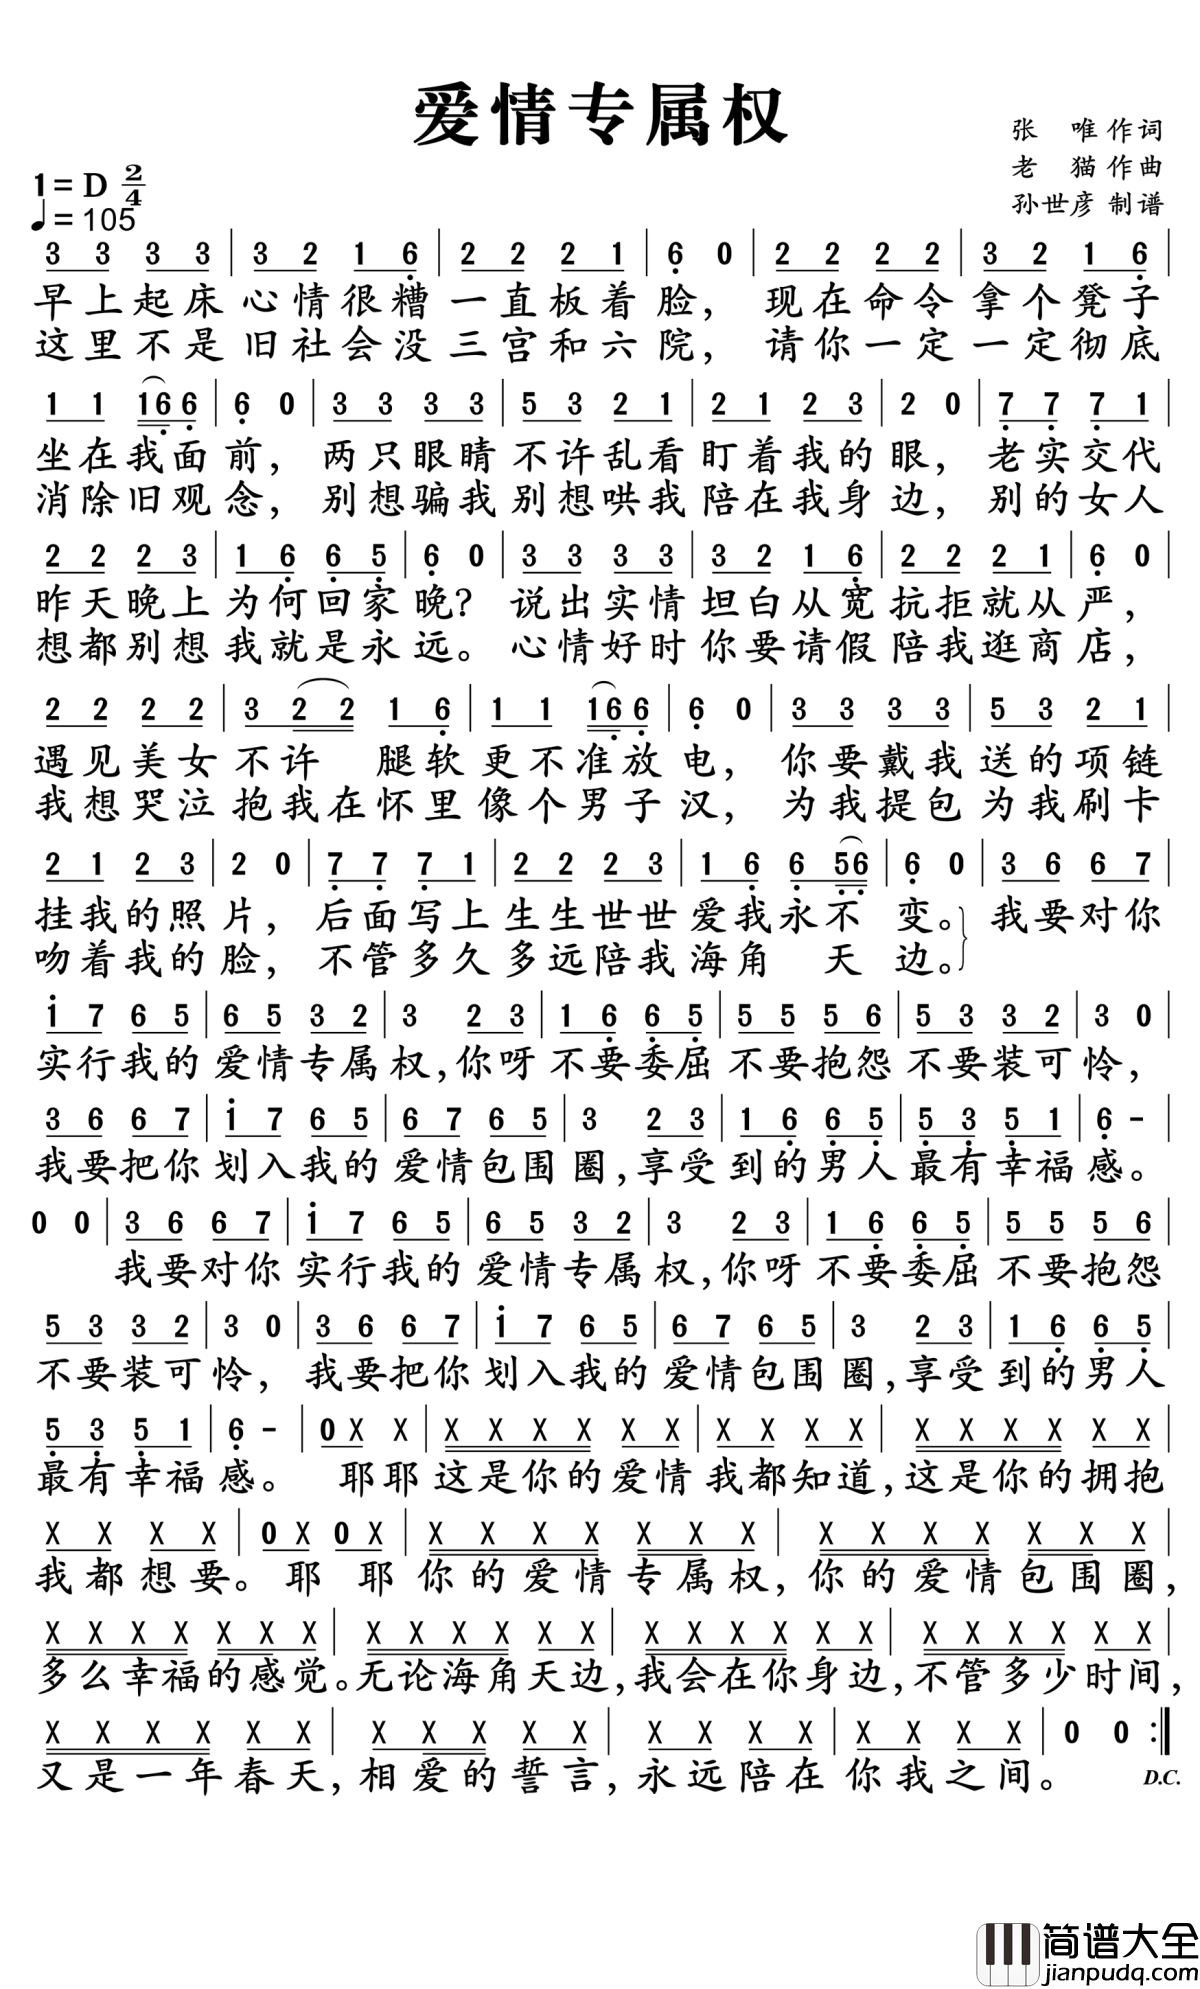 爱情专属权
张 唯 作词
老 猫 作曲
孙世彦 制谱
1= D 2/4
♩= 105
3 3 3 3 | 3 2 1 6 | 2 2 2 1 | 6 0 | 2 2 2 2 | 3 2 1 6 |
早上起床心情很糟一直板着脸，现在命令拿个凳子
这里不是旧社会没三宫和六院，请你一定一定彻底
1 1 16 6 | 6 0 | 3 3 3 3 | 5 3 2 1 | 2 1 2 3 | 2 0 | 7 7 7 1 |
坐在我面前，两只眼睛不许乱看盯着我的眼，老实交代
消除旧观念，别想骗我别想哄我陪在我身边，别的女人
2 2 2 3 | 1 6 6 5 | 6 0 | 3 3 3 3 | 3 2 1 6 | 2 2 2 1 | 6 0 |
昨天晚上为何回家晚？说出实情坦白从宽抗拒就从严，
想都别想我就是永远。心情好时你要请假陪我逛商店，
2 2 2 2 | 3 2 2 1 6 | 1 1 16 6 | 6 0 | 3 3 3 3 | 5 3 2 1 |
遇见美女不许腿软更不准放电，你要戴我送的项链
我想哭泣抱我在怀里像个男子汉，为我提包为我刷卡
2 1 2 3 | 2 0 | 7 7 7 1 | 2 2 2 3 | 1 6 6 56 | 6 0 | 3 6 6 7 |
挂我的照片，后面写上生生世世爱我永不变。我要对你
吻着我的脸，不管多久多远陪我海角天边。
1 7 6 5 | 6 5 3 2 | 3 2 3 | 1 6 6 5 | 5 5 5 6 | 5 3 3 2 | 3 0 |
实行我的爱情专属权，你呀不要委屈不要抱怨不要装可怜，
3 6 6 7 | 1 7 6 5 | 6 7 6 5 | 3 2 3 | 1 6 6 5 | 5 3 5 1 | 6 - |
我要把你划入我的爱情包围圈，享受到的男人最有幸福感。
0 0 | 3 6 6 7 | 1 7 6 5 | 6 5 3 2 | 3 2 3 | 1 6 6 5 | 5 5 5 6 |
我要对你实行我的爱情专属权，你呀不要委屈不要抱怨
5 3 3 2 | 3 0 | 3 6 6 7 | 1 7 6 5 | 6 7 6 5 | 3 2 3 | 1 6 6 5 |
不要装可怜，我要把你划入我的爱情包围圈，享受到的男人
5 3 5 1 | 6 - | 0 X X | X X X X X X | X X X X | X X X X X X |
最有幸福感。耶耶这是你的爱情我都知道，这是你的拥抱
X X X X | 0 X 0 X | X X X X X X X | X X X X X X X |
我都想要。耶耶你的爱情专属权，你的爱情包围圈，
X X X X X X X | X X X X X X | X X X X X X | X X X X X X |
多么幸福的感觉。无论海角天边，我会在你身边，不管多少时间，
X X X X X X | X X X X X | X X X X | X X X X | 0 0 :|
又是一年春天，相爱的誓言，永远陪在你我之间。
D.C.
简谱大全
jianpudq.com